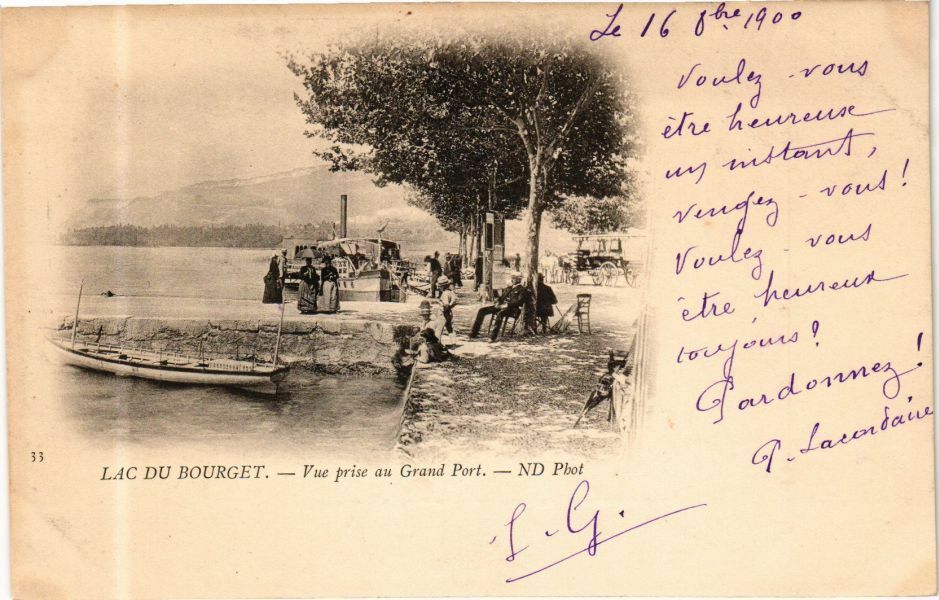 Le 16 8bre 1900
Voulez-vous
être heureuse
un instant,
vengez-vous!
Voulez-vous
être heureux
toujours?
Pardonnez!
P. Lacordaire
33
LAC DU BOURGET. — Vue prise au Grand Port. — ND Phot
S. G.